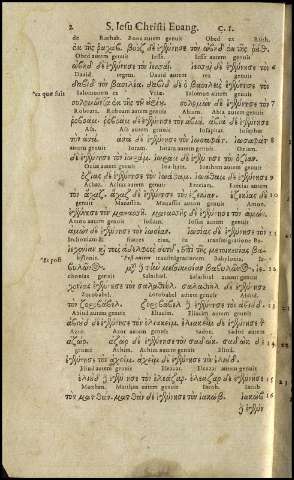 2 S. Iesu Christi Evang. C. I.
de Rachab. Booz autem genuit Obed ex Ruth.
ἐκ τῆς ῥαχάβ. βοὸζ δὲ ἐγέννησε τὸν ὠβὴδ ἐκ τῆς ῥούθ.
Obed autem genuit Iesse. Iesse autem genuit
ὠβὴδ δὲ ἐγέννησε τὸν ἰεσσαί. ἰεσσαὶ δὲ ἐγέννησε τὸν 6
David regem. David autem rex genuit
δαβὶδ τὸν βασιλέα· δαβὶδ δὲ ὁ βασιλεὺς ἐγέννησε τὸν
*ex quæ fuit Salomonem ex * Uriæ. Salomon autem genuit
σολομῶντα ἐκ τῆς τοῦ οὐρίου. σολομὼν δὲ ἐγέννησε τὸν 7
Roboam. Roboam autem genuit Abiam. Abia autem genuit
ῥοβοάμ. ῥοβοὰμ δὲ ἐγέννησε τὸν ἀβιά. ἀβιὰ δὲ ἐγέννησε
Asa. Asa autem genuit Iosaphat. Iosaphat
τὸν ἀσά. ἀσὰ δὲ ἐγέννησε τὸν ἰωσαφάτ. ἰωσαφὰτ 8
autem genuit Ioram. Ioram autem genuit Oziam.
δὲ ἐγέννησε τὸν ἰωράμ. ἰωρὰμ δὲ ἐγέννησε τὸν ὀζίαν.
Ozias autem genuit Ioatham. Ioatham autem genuit
ὀζίας δὲ ἐγέννησε τὸν ἰωάθαμ. ἰωάθαμ δὲ ἐγέννησε 9
Achaz. Achaz autem genuit Ezeciam. Ezecias autem
τὸν ἄχαζ. ἄχαζ δὲ ἐγέννησε τὸν ἐζεκίαν. ἐζεκίας δὲ 10
genuit Manassen. Manasses autem genuit Amon.
ἐγέννησε τὸν μανασσῆ. μανασσῆς δὲ ἐγέννησε τὸν ἀμών.
Amon autem genuit Iosiam. Iosias autem genuit
ἀμὼν δὲ ἐγέννησε τὸν ἰωσίαν. ἰωσίας δὲ ἐγέννησε τὸν 11
Iechoniam & fratres eius, in transmigratione Ba-
ἰεχονίαν καὶ τοὺς ἀδελφοὺς αὐτοῦ, ἐπὶ τῆς μετοικεσίας βα-
*Et post bylonis. *Post autem transmigrationem Babylonis, Ie-
βυλῶνος. μετὰ δὲ τὴν μετοικεσίαν βαβυλῶνος, ἰε- 12
chonias genuit Salathiel. Salathiel autem genuit
χονίας ἐγέννησε τὸν σαλαθιήλ. σαλαθιὴλ δὲ ἐγέννησε
Zorobabel. Zorobabel autem genuit Abiud.
τὸν ζοροβάβελ. ζοροβάβελ δὲ ἐγέννησε τὸν ἀβιούδ. 13
Abiud autem genuit Eliacim. Eliacim autem genuit
ἀβιοὺδ δὲ ἐγέννησε τὸν ἐλιακείμ. ἐλιακεὶμ δὲ ἐγέννησε τὸν
Azor. Azor autem genuit Sadoc. Sadoc autem
ἀζώρ. ἀζὼρ δὲ ἐγέννησε τὸν σαδώκ. σαδὼκ δὲ 14
genuit Achim. Achim autem genuit Eliud.
ἐγέννησε τὸν ἀχείμ. ἀχεὶμ δὲ ἐγέννησε τὸν ἐλιούδ.
Eliud autem genuit Eleazar. Eleazar autem genuit
ἐλιοὺδ δὲ ἐγέννησε τὸν ἐλεάζαρ. ἐλεάζαρ δὲ ἐγέννησε 15
Matthan. Matthan autem genuit Iacob. Iacob
τὸν ματθάν. ματθὰν δὲ ἐγέννησε τὸν ἰακώβ. ἰακὼβ 16
δὲ ἐγέννη-